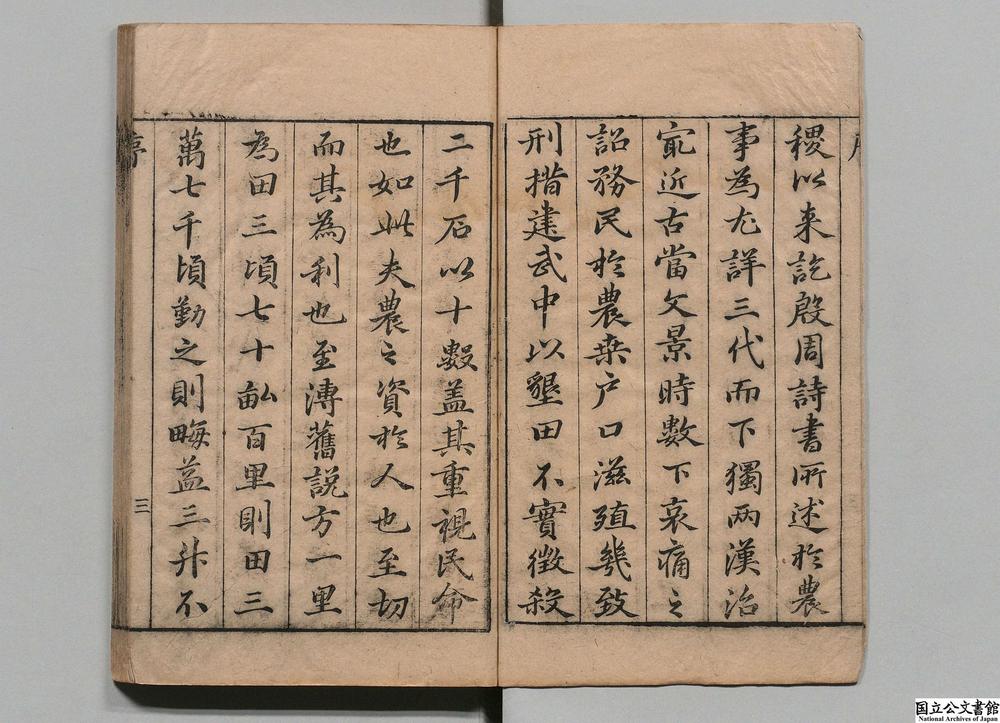 稷以来訖殷周詩書所述於農
事為尤詳三代而下獨两漢治
㝡近古當文景時數下哀痛之
詔務民於農桒户口滋殖幾致
刑措建武中以墾田不實徴殺
二千石以十數盖其重視民命
也如此夫農之資於人也至切
而其為利也至溥舊説方一里
為田三頃七十畝百里則田三
萬七千頃勤之則畮益三升不
三
国立公文書館
National Archives of Japan